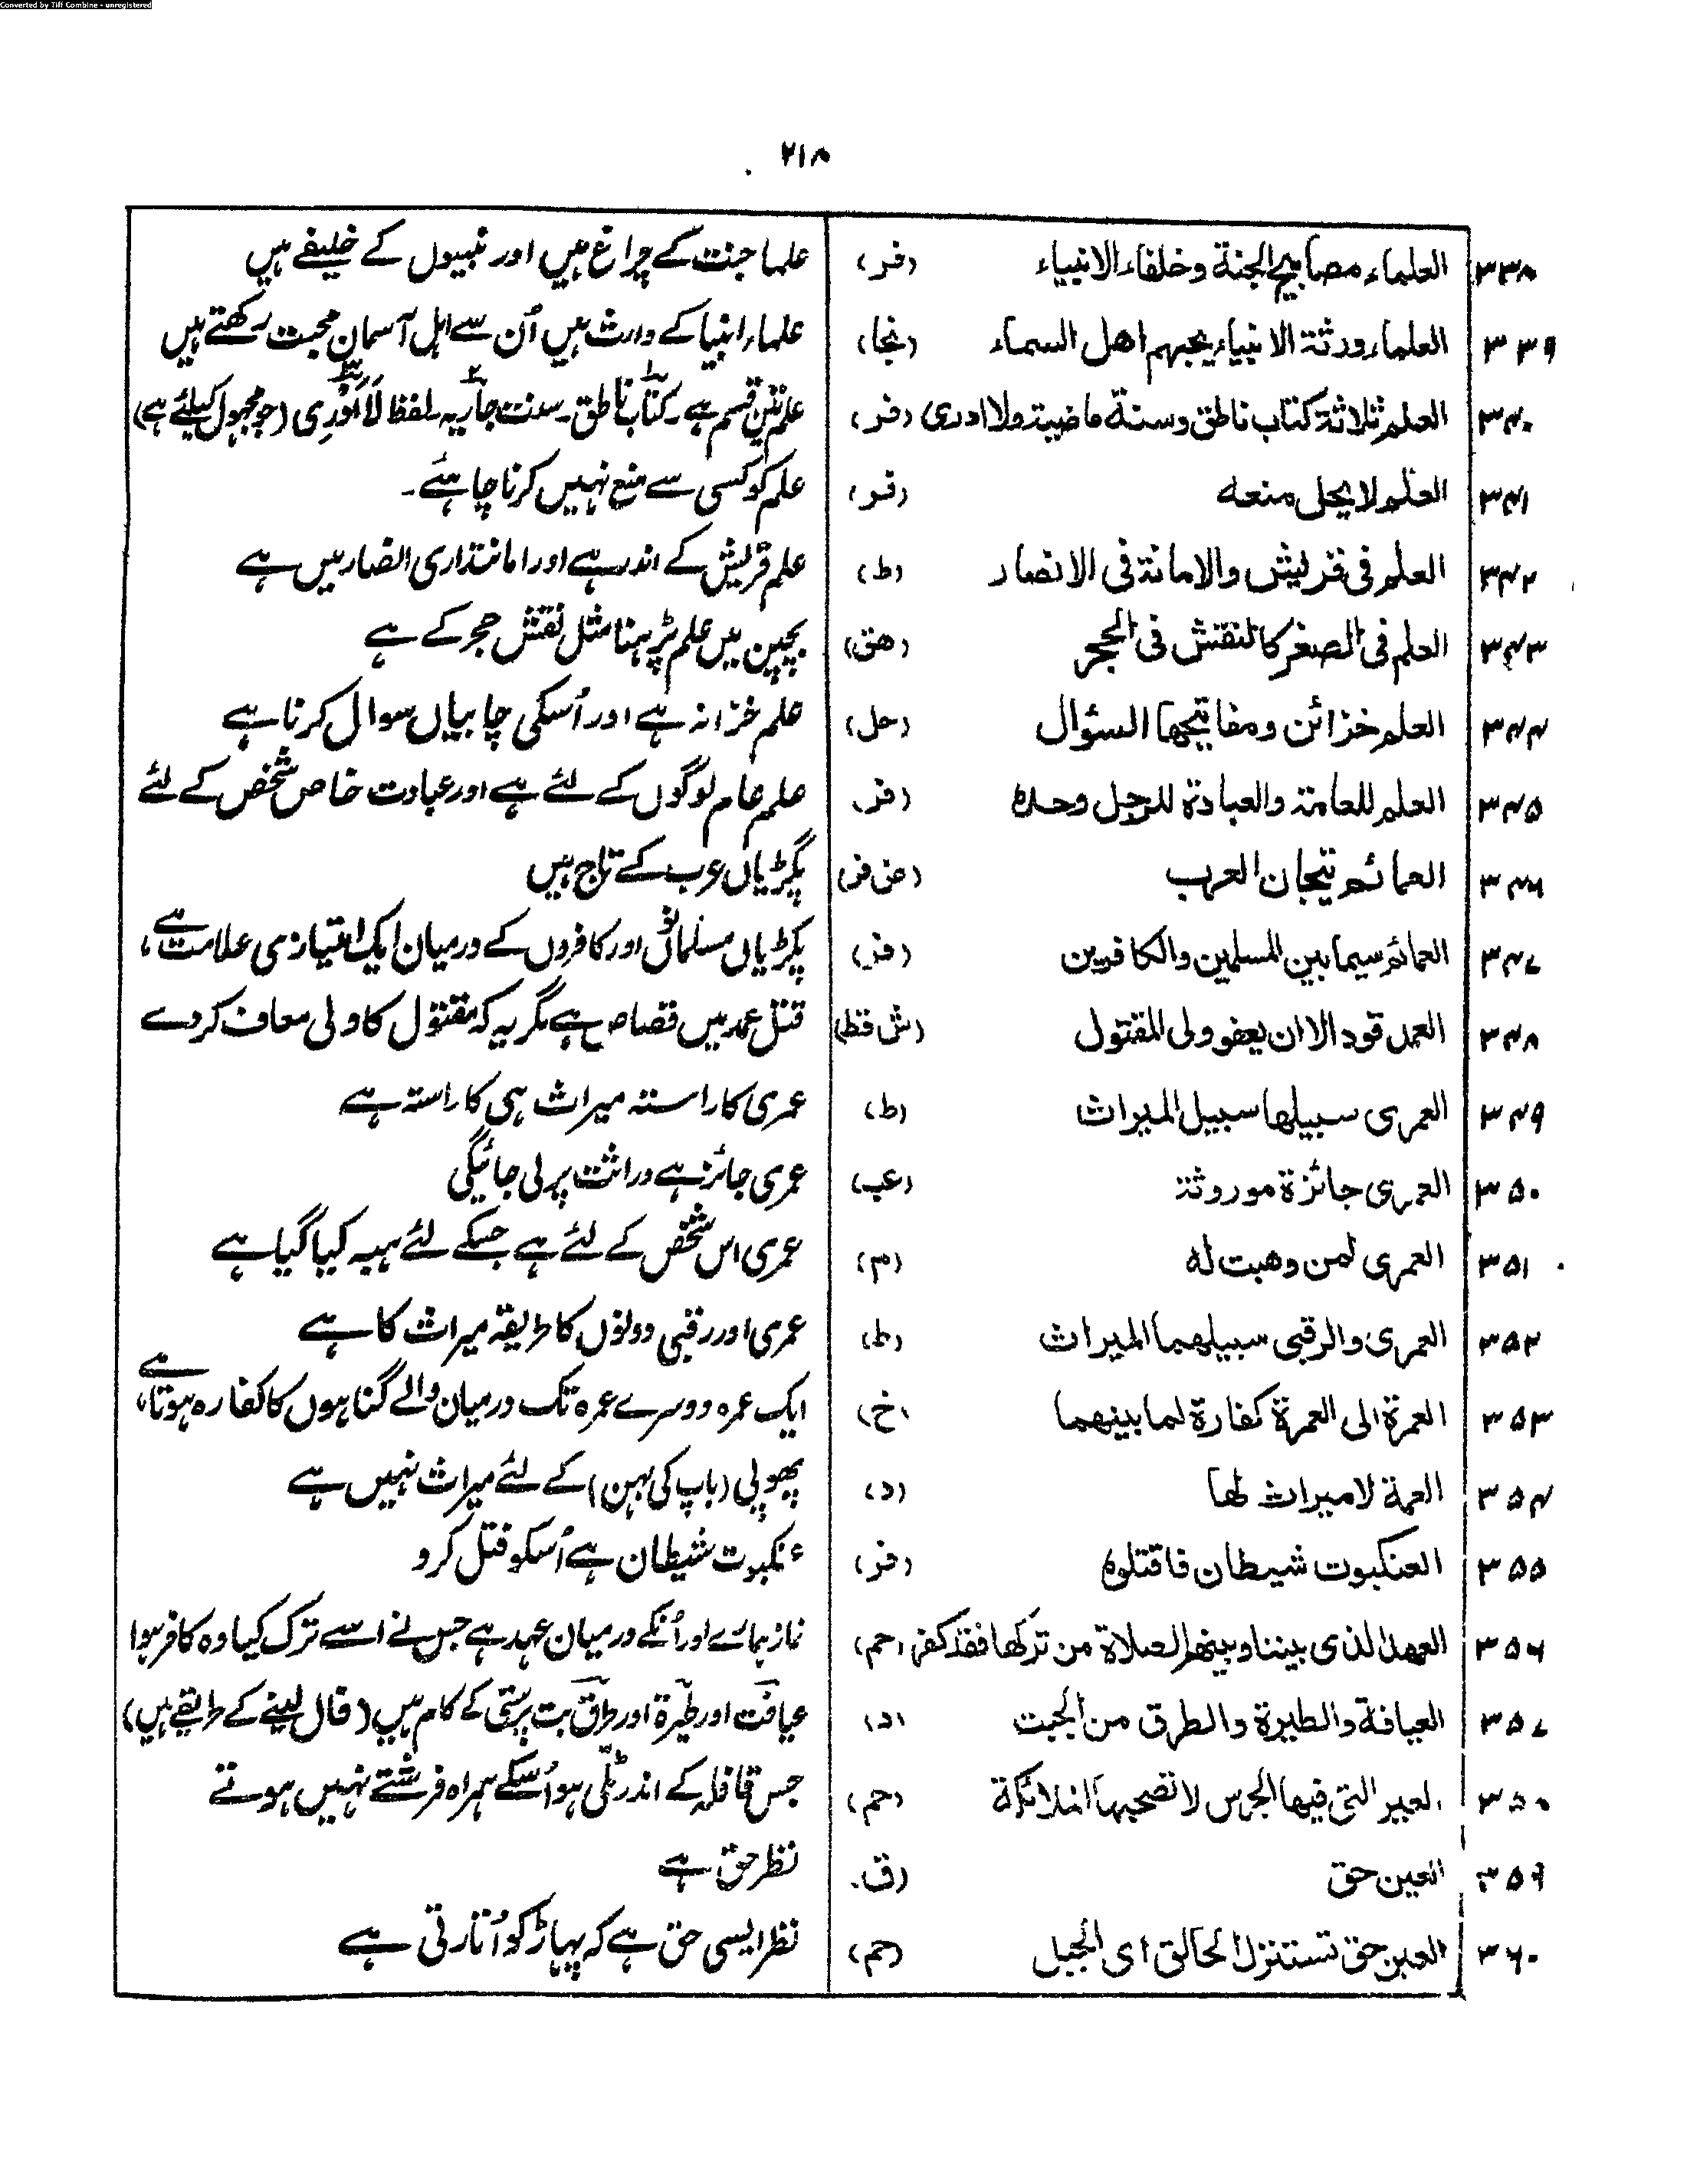 Converted by Tiff Combine - unregistered
۲۱۸
۳۳۸ العلماء مصابیح الجنة وخلفاء الانبیاء (فر) علما جنت کے چراغ ہیں اور نبیوں کے خلیفے ہیں
۳۳۹ العلماء ورثة الانبیاء یحبهم اهل السماء (نجا) علماء انبیا کے وارث ہیں اُن سے اہل آسمان محبت رکھتے ہیں
۳۴۰ العلم ثلاثة کتاب ناطق وسنة ماضیة ولا ادری (فر) علم تین قسم ہے۔ کتاب ناطق۔ سنت جاریہ۔ لفظ لَا اَدْرِی (جو مجہول کیلئے ہے)
۳۴۱ العلم لا یحل منعه (فر) علم کو کسی سے منع نہیں کرنا چاہئے۔
۳۴۲ العلم فی قریش والامانة فی الانصار (ط) علم قریش کے اندر ہے اور امانتداری انصار میں ہے
۳۴۳ العلم فی الصغر کالنقش فی الحجر (هق) بچپن میں علم پڑہنا مثل نقش حجر کے ہے
۳۴۴ العلم خزائن ومفاتیحها السؤال (حل) علم خزانہ ہے اور اُسکی چابیاں سوال کرنا ہے
۳۴۵ العلم للعامة والعبادة للرجل وحده (فر) علم عام لوگوں کے لئے ہے اور عبادت خاص شخص کے لئے
۳۴۶ العمائم تیجان العرب (ض فر) پگڑیاں عرب کے تاج ہیں
۳۴۷ العمائم سیما بین المسلمین والکافرین (فر) پگڑیاں مسلمانوں اور کافروں کے درمیان ایک امتیازی علامت ہے،
۳۴۸ العمد قود الا ان یعفو ولی المقتول (ش قط) قتل عمد میں قصاص ہے مگر یہ کہ مقتول کا ولی معاف کردے
۳۴۹ العمری سبیلها سبیل المیراث (ط) عمری کا راستہ میراث ہی کا راستہ ہے
۳۵۰ العمری جائزة موروثة (عب) عمری جائز ہے وراثت پر لی جائیگی
۳۵۱ العمری لمن وهبت له (م) عمری اس شخص کے لئے ہے جسکے لئے ہبہ کیا گیا ہے
۳۵۲ العمری والرقبی سبیلهما المیراث (ط) عمری اور رقبی دونوں کا طریقہ میراث کا ہے
۳۵۳ العمرة الی العمرة کفارة لما بینهما (خ) ایک عمرہ دوسرے عمرہ تک درمیان والے گناہوں کا کفارہ ہوتا ہے،
۳۵۴ العمة لا میراث لها (د) پھوپی (باپ کی بہن) کے لئے میراث نہیں ہے
۳۵۵ العنکبوت شیطان فاقتلوه (فر) عنکبوت شیطان ہے اُسکو قتل کرو
۳۵۶ العهد الذی بیننا وبینهم الصلاة من ترکها فقد کفر (حم) نماز ہمارے اور اُنکے درمیان عہد ہے جس نے اسے ترک کیا وہ کافر ہوا
۳۵۷ العیافة والطیرة والطرق من الجبت (د) عیافت اور طیرة اور طرق بت پرستی کے کام ہیں (فال لینے کے طریقے ہیں)
۳۵۸ العیر التی فیها الجرس لا تصحبها الملائکة (حم) جس قافلہ کے اندر ٹلّی ہو اُسکے ہمراہ فرشتے نہیں ہوتے
۳۵۹ العین حق (ق) نظر حق ہے
۳۶۰ العین حق تستنزل الحالق ای الجبل (حم) نظر ایسی حق ہے کہ پہاڑ کو اُتارتی ہے